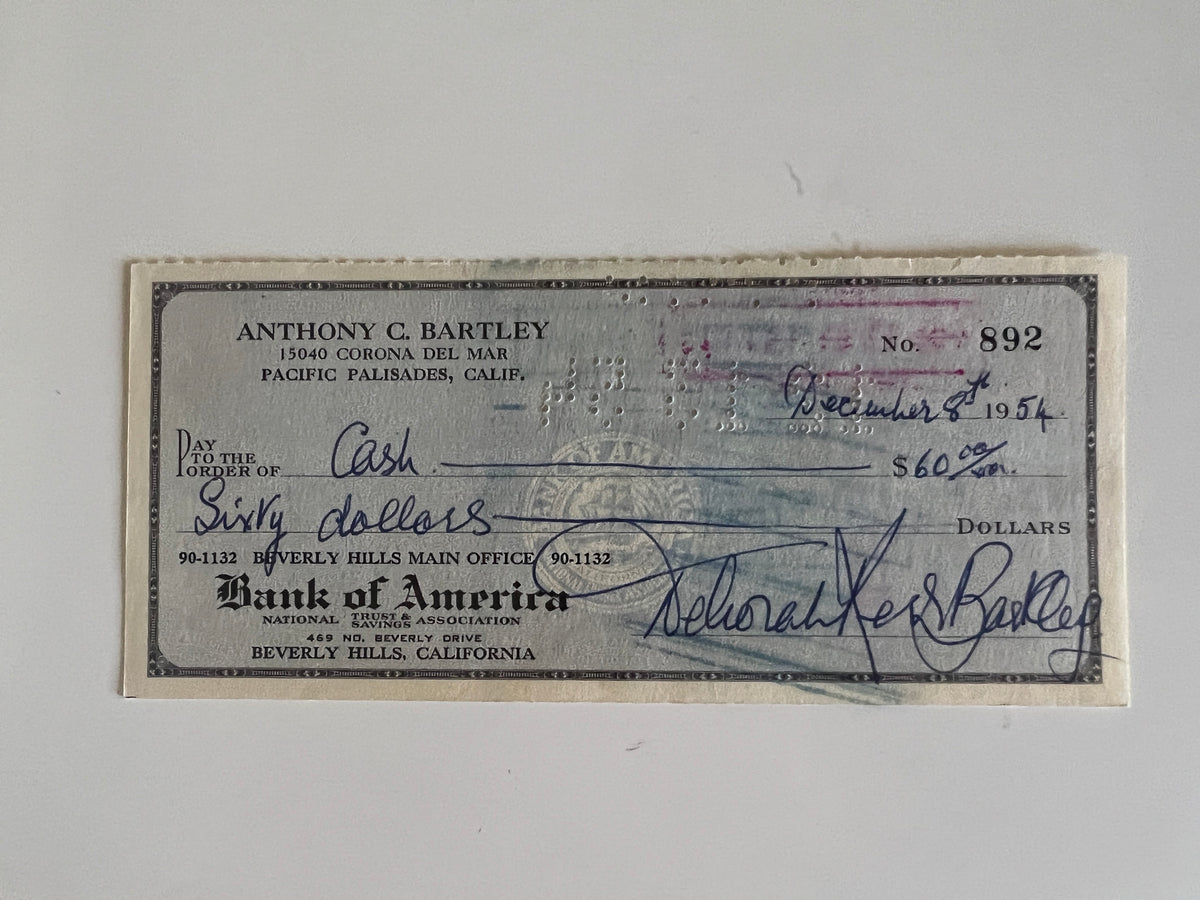 ANTHONY C. BARTLEY
15040 CORONA DEL MAR
PACIFIC PALISADES, CALIF.
No. 892
December 8th 1954
PAY TO THE ORDER OF Cash
$60 00/
Sixty dollars DOLLARS
90-1132 BEVERLY HILLS MAIN OFFICE 90-1132
Bank of America
NATIONAL TRUST & SAVINGS ASSOCIATION
469 NO. BEVERLY DRIVE
BEVERLY HILLS, CALIFORNIA
Deborah Kerr Bartley